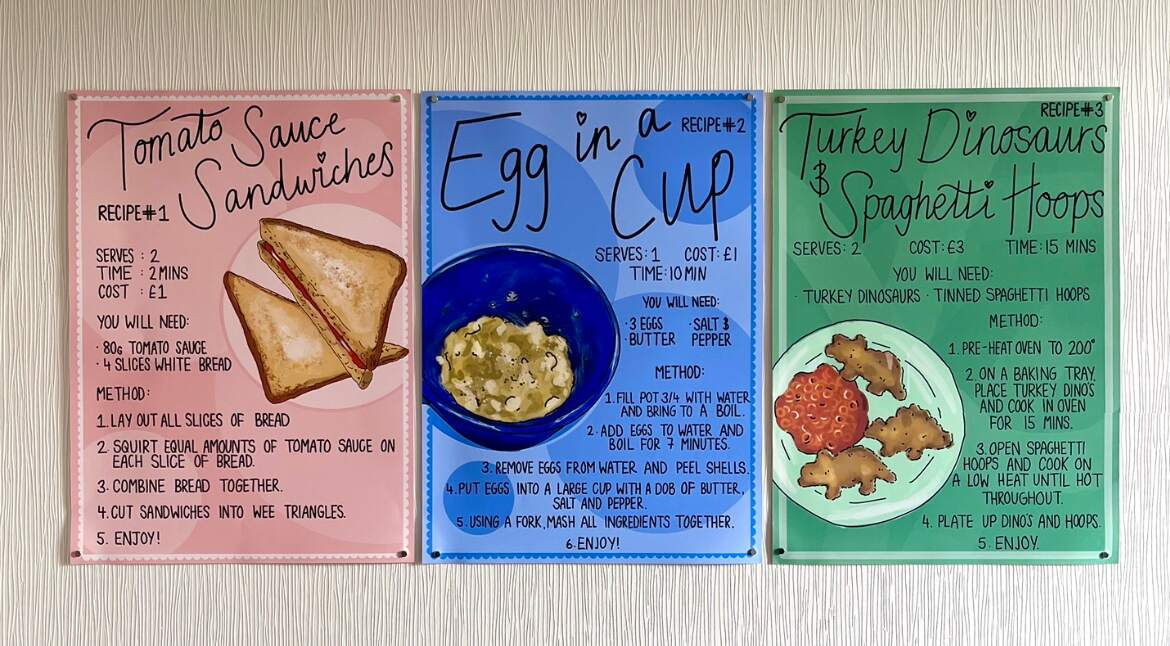 Tomato Sauce
Sandwiches
RECIPE#1
SERVES : 2
TIME : 2MINS
COST : £1
YOU WILL NEED:
· 80g TOMATO SAUCE
· 4 SLICES WHITE BREAD
METHOD:
1. LAY OUT ALL SLICES OF BREAD
2. SQUIRT EQUAL AMOUNTS OF TOMATO SAUCE ON
EACH SLICE OF BREAD.
3. COMBINE BREAD TOGETHER.
4. CUT SANDWICHES INTO WEE TRIANGLES.
5. ENJOY!
Egg in a
Cup
RECIPE#2
SERVES: 1 COST: £1
TIME: 10 MIN
YOU WILL NEED:
· 3 EGGS · SALT &
· BUTTER PEPPER
METHOD:
1. FILL POT 3/4 WITH WATER
AND BRING TO A BOIL.
2. ADD EGGS TO WATER AND
BOIL FOR 7 MINUTES.
3. REMOVE EGGS FROM WATER AND PEEL SHELLS.
4. PUT EGGS INTO A LARGE CUP WITH A DOB OF BUTTER,
SALT AND PEPPER.
5. USING A FORK, MASH ALL INGREDIENTS TOGETHER.
6. ENJOY!
RECIPE#3
Turkey Dinosaurs
& Spaghetti Hoops
SERVES: 2 COST: £3 TIME: 15 MINS
YOU WILL NEED:
· TURKEY DINOSAURS · TINNED SPAGHETTI HOOPS
METHOD:
1. PRE-HEAT OVEN TO 200°
2. ON A BAKING TRAY,
PLACE TURKEY DINO'S
AND COOK IN OVEN
FOR 15 MINS.
3. OPEN SPAGHETTI
HOOPS AND COOK ON
A LOW HEAT UNTIL HOT
THROUGHOUT.
4. PLATE UP DINO'S AND HOOPS.
5. ENJOY.